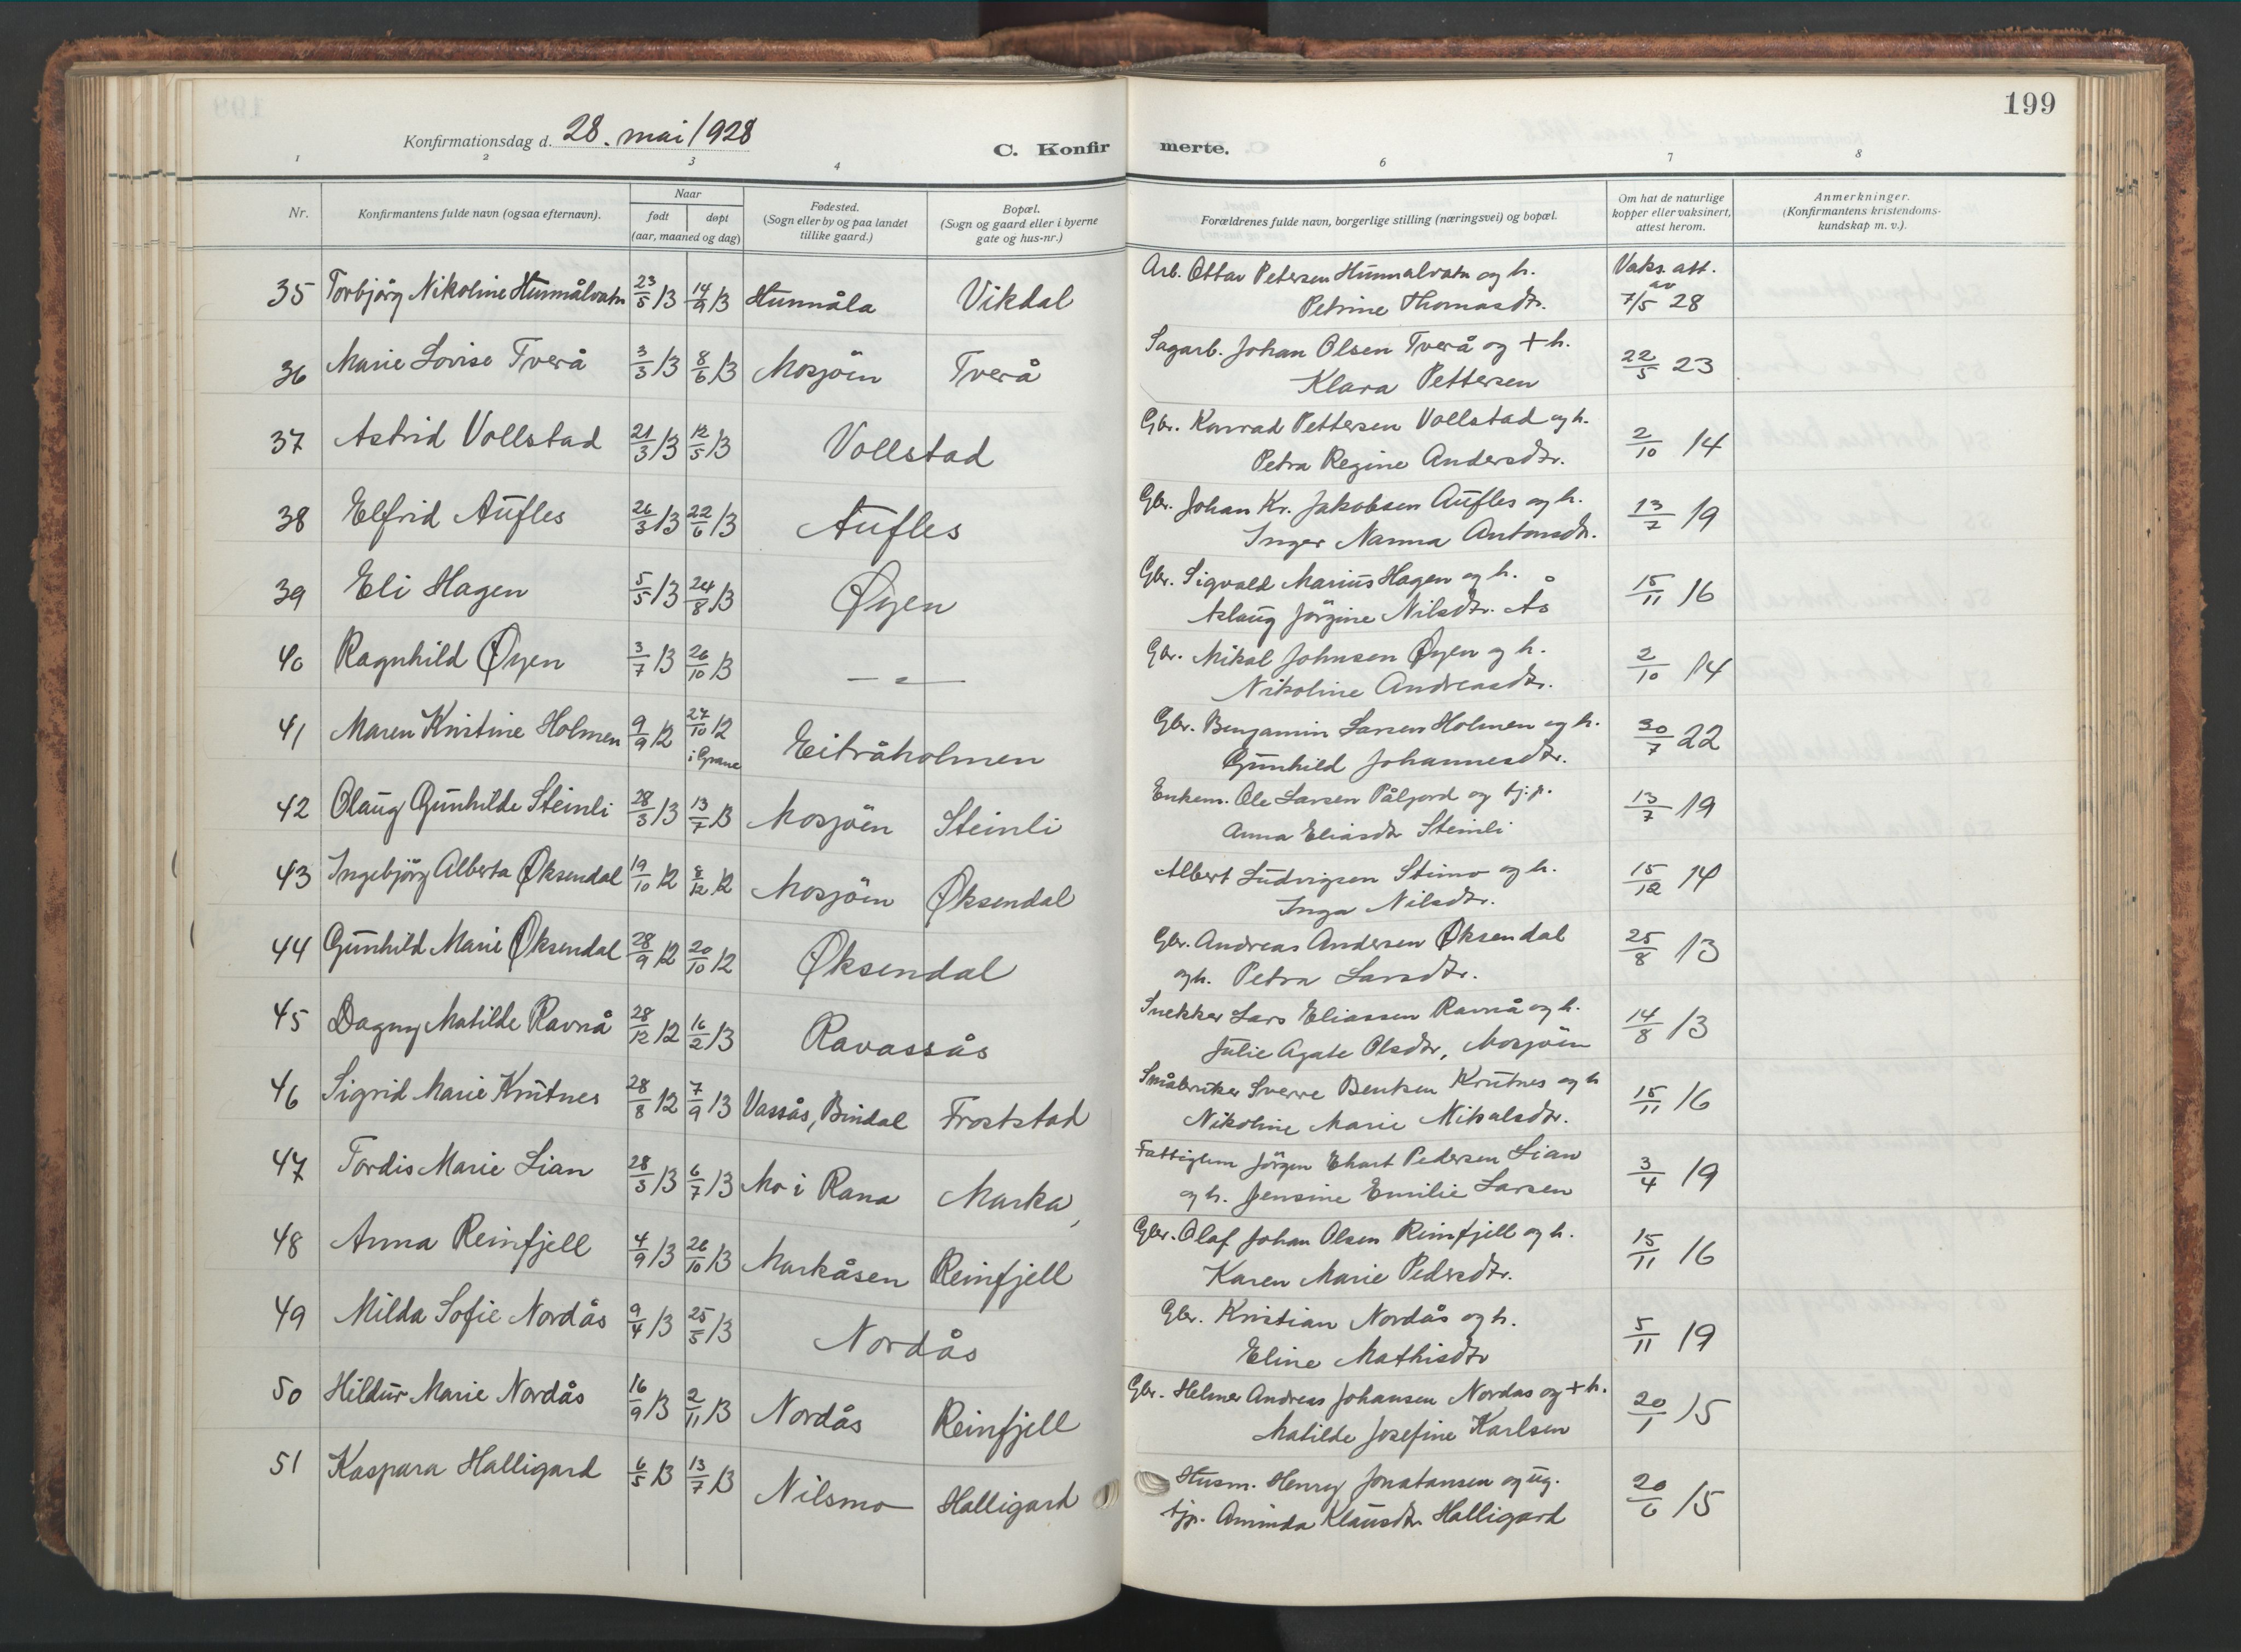 199
Konfirmationsdag d. 28. mai 1928
C. Konfirmerte.
1 2 3 4 6 7 8
Nr.
Konfirmantens fulde navn (ogsaa efternavn).
Naar
født døpt
(aar, maaned og dag)
Fødested.
(Sogn eller by og paa landet
tillike gaard.)
Bopæl.
(Sogn og gaard eller i byerne
gate og hus-nr.)
Forældrenes fulde navn, borgerlige stilling (næringsvei) og bopæl.
Om hat de naturlige
kopper eller vaksinert,
attest herom.
Anmerkninger.
(Konfirmantens kristendoms-
kundskap m. v.).
35 Torbjörg Nikoline Hunnålvatn 23/5 13 14/9 13 Hunnåla Vikdal Arb. Ottar Petersen Hunnalvatn og h. Vaks. att. av
Petrine Thomasdtr. 7/5 28
36 Marie Lovise Tverå 3/3 13 8/6 13 Mosjöen Tverå Sagarb. Johan Olsen Tverå og + h. 22/5 23
Klara Pettersen
37 Astrid Vollstad 21/3 13 12/5 13 Vollstad Gbr. Konrad Pettersen Vollstad og h. 2/10 14
Petra Regine Andersdtr.
38 Elfrid Aufles 26/3 13 22/6 13 Aufles Gbr. Johan Kr. Jakobsen Aufles og h. 13/7 19
Inger Nanna Antonsdtr.
39 Eli Hagen 5/5 13 24/8 13 Øyen Gbr. Sigvald Marius Hagen og h. 15/11 16
Aslaug Jörgine Nilsdtr. Ås
40 Ragnhild Øyen 3/7 13 26/10 13 — " — Gbr. Mikal Johnsen Øyen og h. 2/10 14
Nikoline Andreasdtr.
41 Maren Kristine Holmen 9/9 12 27/10 12 i Grane Eitråholmen Gbr. Benjamin Larsen Holmen og h. 30/7 22
Gunhild Johannesdtr.
42 Olaug Gunhilde Steinli 28/3 13 13/7 13 Mosjöen Steinli Enkem. Ole Larsen Påljord og tj.p. 13/7 19
Anna Eliasdtr Steinli
43 Ingebjörg Alberta Øksendal 19/10 12 8/12 12 Mosjöen Øksendal Albert Ludvigsen Stimo og h. 15/12 14
Inga Nilsdtr.
44 Gunhild Marie Øksendal 28/9 12 20/10 12 Øksendal Gbr. Andreas Andersen Øksendal 25/8 13
og h. Petra Larsdtr.
45 Dagny Matilde Ravnå 28/12 12 16/2 13 Ravassås Snekker Lars Eliassen Ravnå og h. 14/8 13
Julie Agate Olsdtr, Mosjöen
46 Sigrid Marie Krutnes 28/8 12 7/9 13 Vassås, Bindal Froststad Småbruker Sverre Bentsen Krutnes og h 15/11 16
Nikoline Marie Mikalsdtr.
47 Tordis Marie Lian 28/3 13 6/7 13 Mo i Rana Marka, Fattiglem Jörgen Ehart Pedersen Lian 3/4 19
og h. Jensine Emilie Larsen
48 Anna Reinfjell 4/9 13 26/10 13 Markåsen Reinfjell Gbr. Olaf Johan Olsen Reinfjell og h. 15/11 16
Karen Marie Pedersdtr.
49 Milda Sofie Nordås 9/4 13 25/5 13 Nordås Gbr. Kristian Nordås og h. 5/11 19
Eline Mathisdtr
50 Hildur Marie Nordås 16/9 13 2/11 13 Nordås Reinfjell Gbr. Helmer Andreas Johansen Nordas og + h. 20/1 15
Matilde Josefine Karlsen
51 Kaspara Halligard 6/5 13 13/7 13 Nilsmo Halligard Husm. Henry Jonatansen og ug. 20/6 15
tjp. Aminda Klausdtr. Halligard